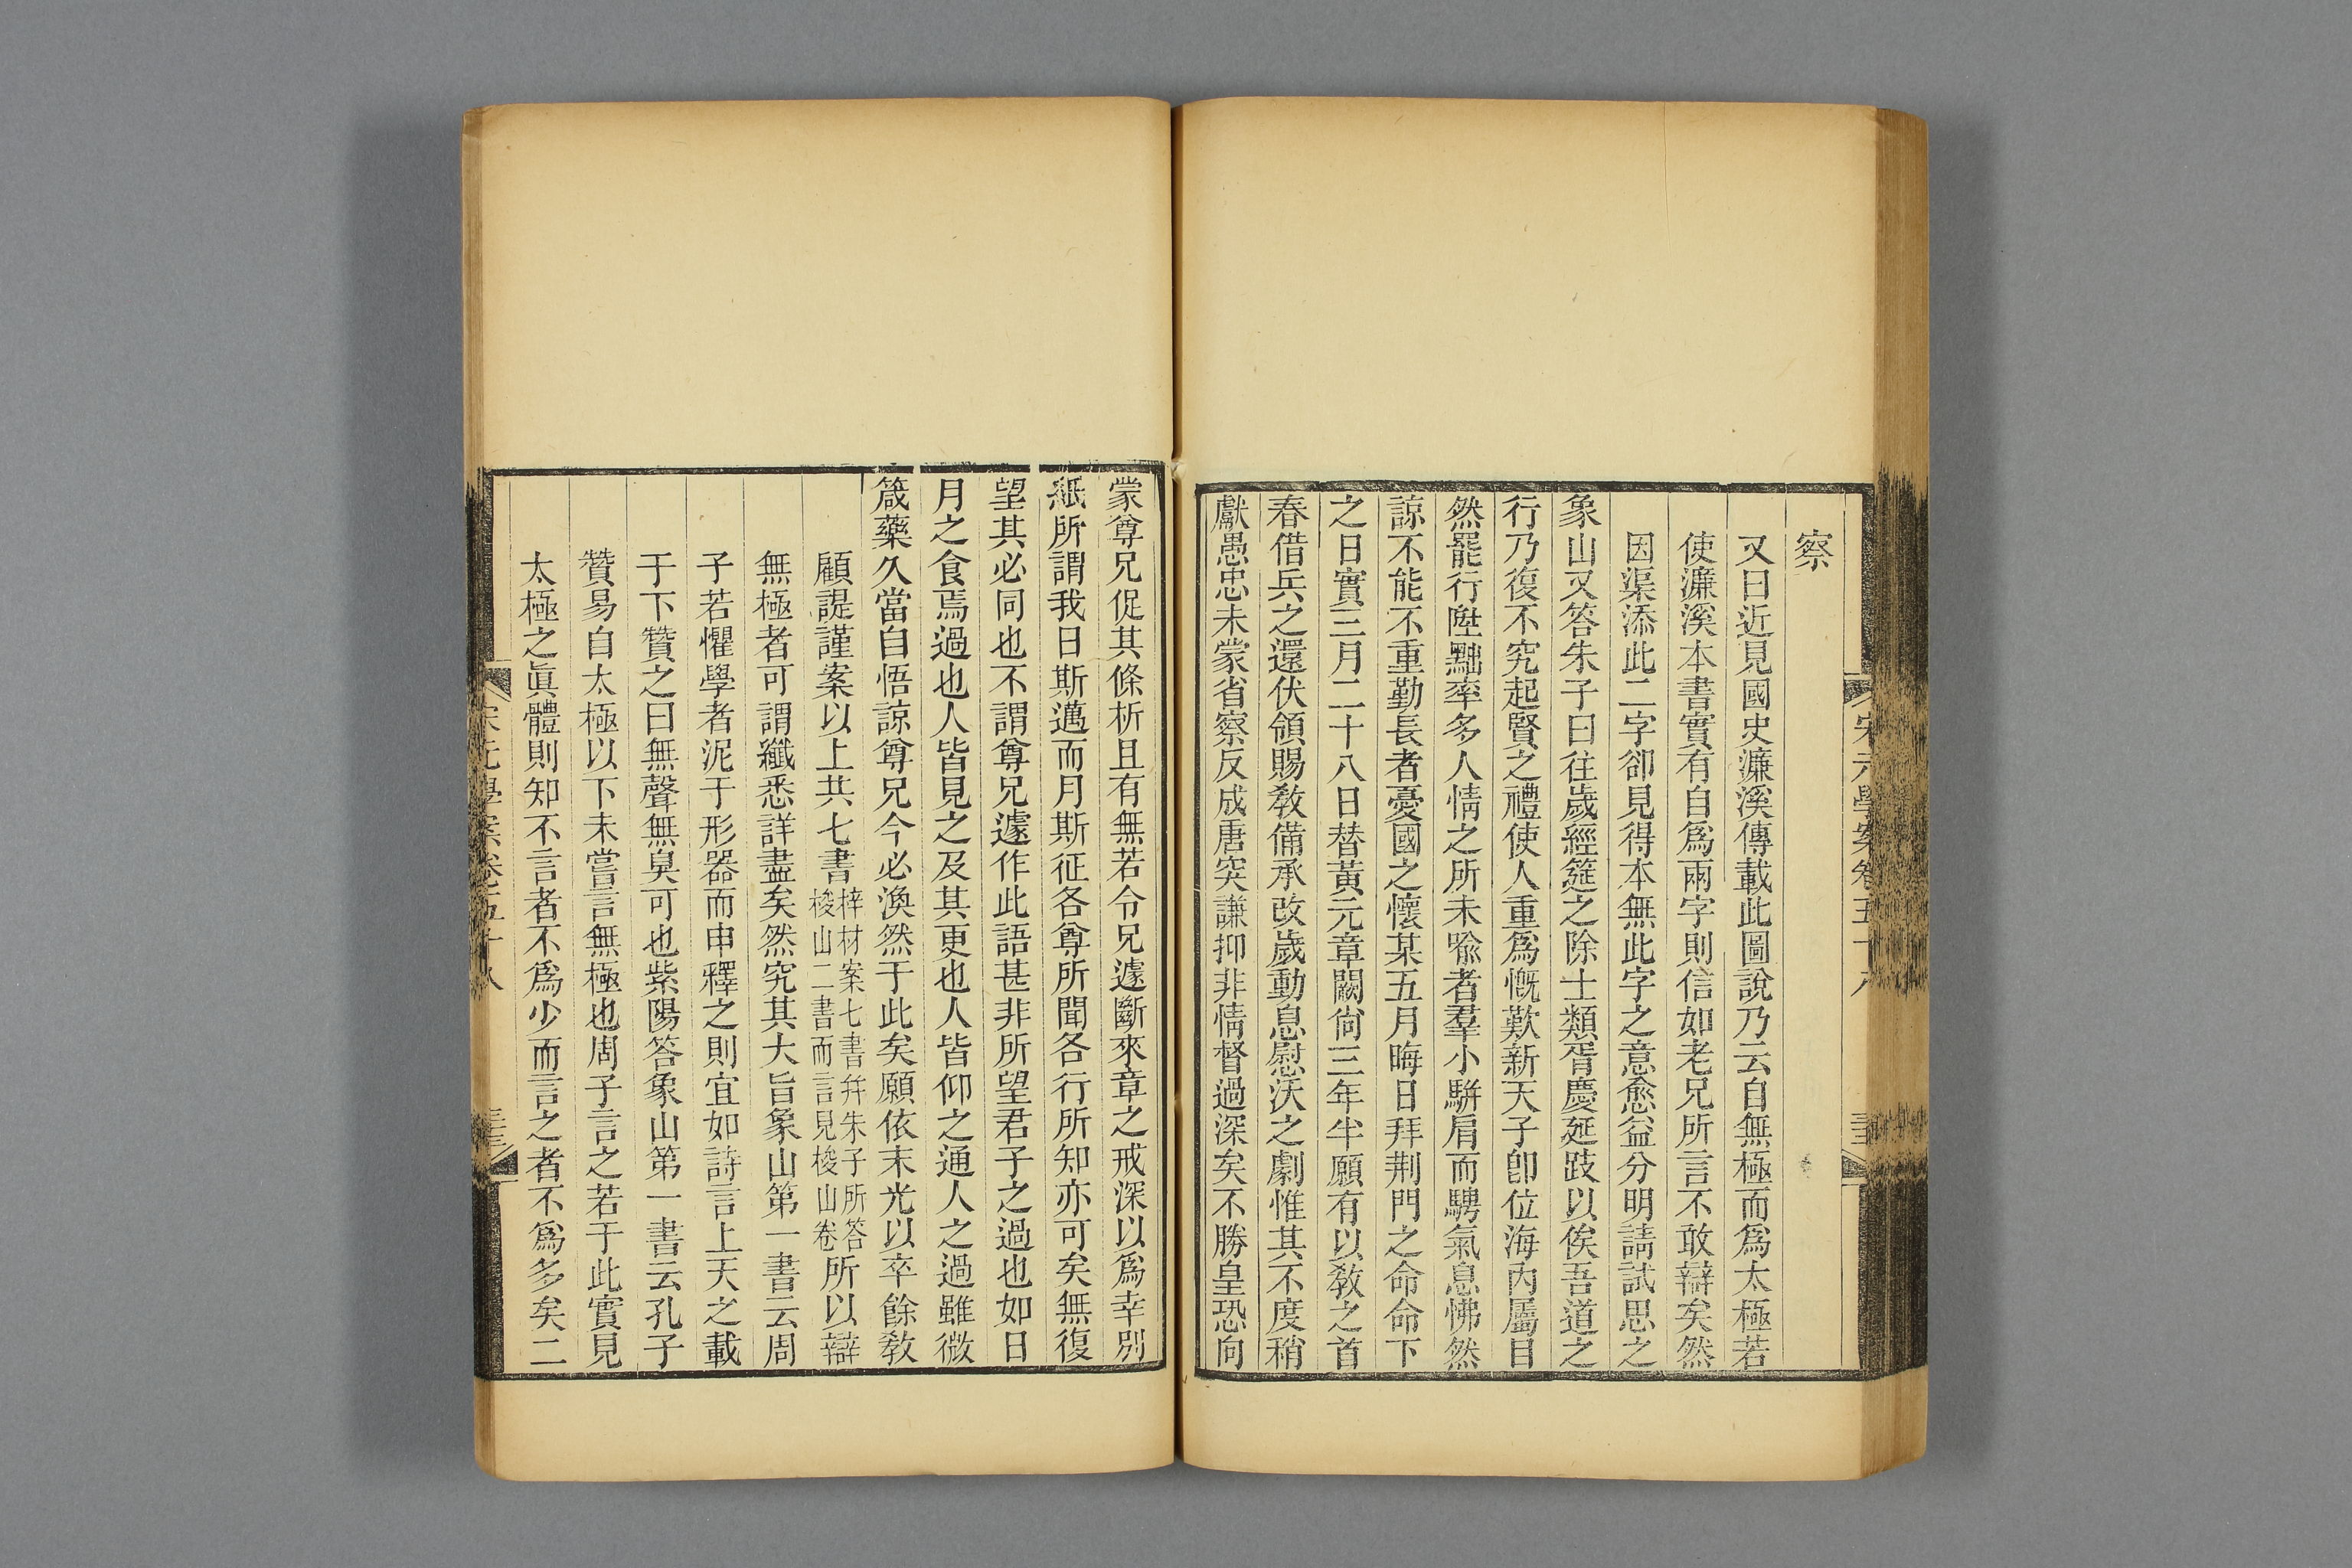 察
又曰近見國史濂溪傳載此圖說乃云自無極而爲太極若
使濂溪本書實有自爲兩字則信如老兄所言不敢辯矣然
因渠添此二字卻見得本無此字之意愈益分明請試思之
象山又答朱子曰往歲經筵之除士類胥慶延跂以俟吾道之
行乃復不究起賢之禮使人重爲慨歎新天子卽位海內屬目
然罷行陞黜率多人情之所未喩者羣小駢肩而騁氣息怫然
諒不能不重勤長者憂國之懷某五月晦日拜荆門之命命下
之日實三月二十八日替黃元章闕尙三年半願有以敎之首
春借兵之還伏領賜敎備承改歲動息慰沃之劇惟其不度稍
獻愚忠未蒙省察反成唐突謙抑非情督過深矣不勝皇恐向
蒙尊兄促其條析且有無若令兄遽斷來章之戒深以爲幸別
紙所謂我日斯邁而月斯征各尊所聞各行所知亦可矣無復
望其必同也不謂尊兄遽作此語甚非所望君子之過也如日
月之食焉過也人皆見之及其更也人皆仰之通人之過雖微
箴藥久當自悟諒尊兄今必渙然于此矣願依末光以卒餘敎
顧諟謹案以上共七書梓材案七書幷朱子所答梭山二書而言見梭山卷所以辯
無極者可謂纖悉詳盡矣然究其大旨象山第一書云周
子若懼學者泥于形器而申釋之則宜如詩言上天之載
于下贊之曰無聲無臭可也紫陽答象山第一書云孔子
贊易自太極以下未嘗言無極也周子言之若于此實見
太極之眞體則知不言者不爲少而言之者不爲多矣二
宋元學案卷五十八